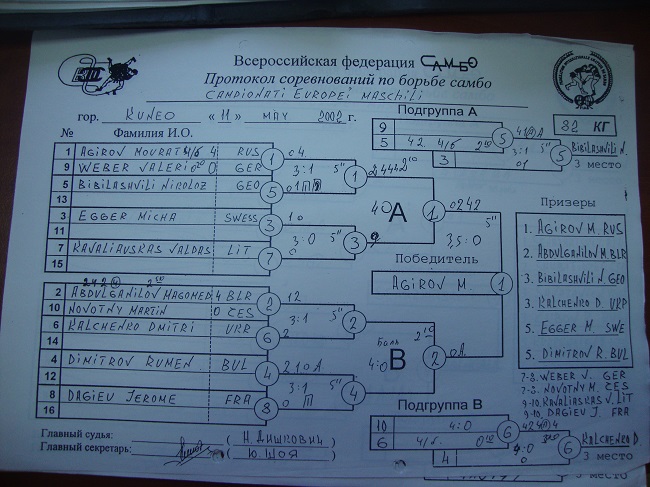 Всероссийская федерация САМБО
Протокол соревнований по борьбе самбо
CAMPIONATI EUROPEI MASCHILI
гор. KUNEO « 11 » MAY 2002 г.
Подгруппа А
82 КГ
№ Фамилия И.О.
1 AGIROV MOURAT 4/б 4 RUS
9 WEBER VALERI 0 GER
5 BIBILASHVILI NIKOLOZ GEO
13
3 EGGER MICHA SWESS
11
7 KAVALIAUSKAS VALDAS LIT
15
1
5
3
7
3:1 5"
3:0 5"
1
3
4:0 А
1
0242
3,5:0 5"
9
5 42 4/б
3
5
3:1 5"
5
BIBILASHVILI N.
3 место
Победитель
AGIROV M.
1
Призеры
1. AGIROV M. RUS
2. ABDULGANILOV M. BLR
3. BIBILASHVILI N. GEO
3. KALCHENKO D. UKR
5. EGGER M. SWE
5. DIMITROV R. BUL
7-8. WEBER V. GER
7-8. NOVOTNY M. ČES
9-10. KAVALIASKAS V. LIT
9-10. DAGIEV J. FRA
2 ABDULGANILOV MAGOMED 4 BLR
10 NOVOTNY MARTIN 0 ČES
6 KALCHENKO DMITRI UKR
14
4 DIMITROV RUMEN BUL
12
8 DAGIEV JEROME FRA
16
2
6
4
8
12
3:1 5"
3:1 5"
2
4
4:0 В
2
Подгруппа В
10 4:0
6 4/б
4
6
4:0
6
KALCHENKO D.
3 место
Главный судья: ( Н. Дишкович )
Главный секретарь: ( Ю. Шоя )
3 место